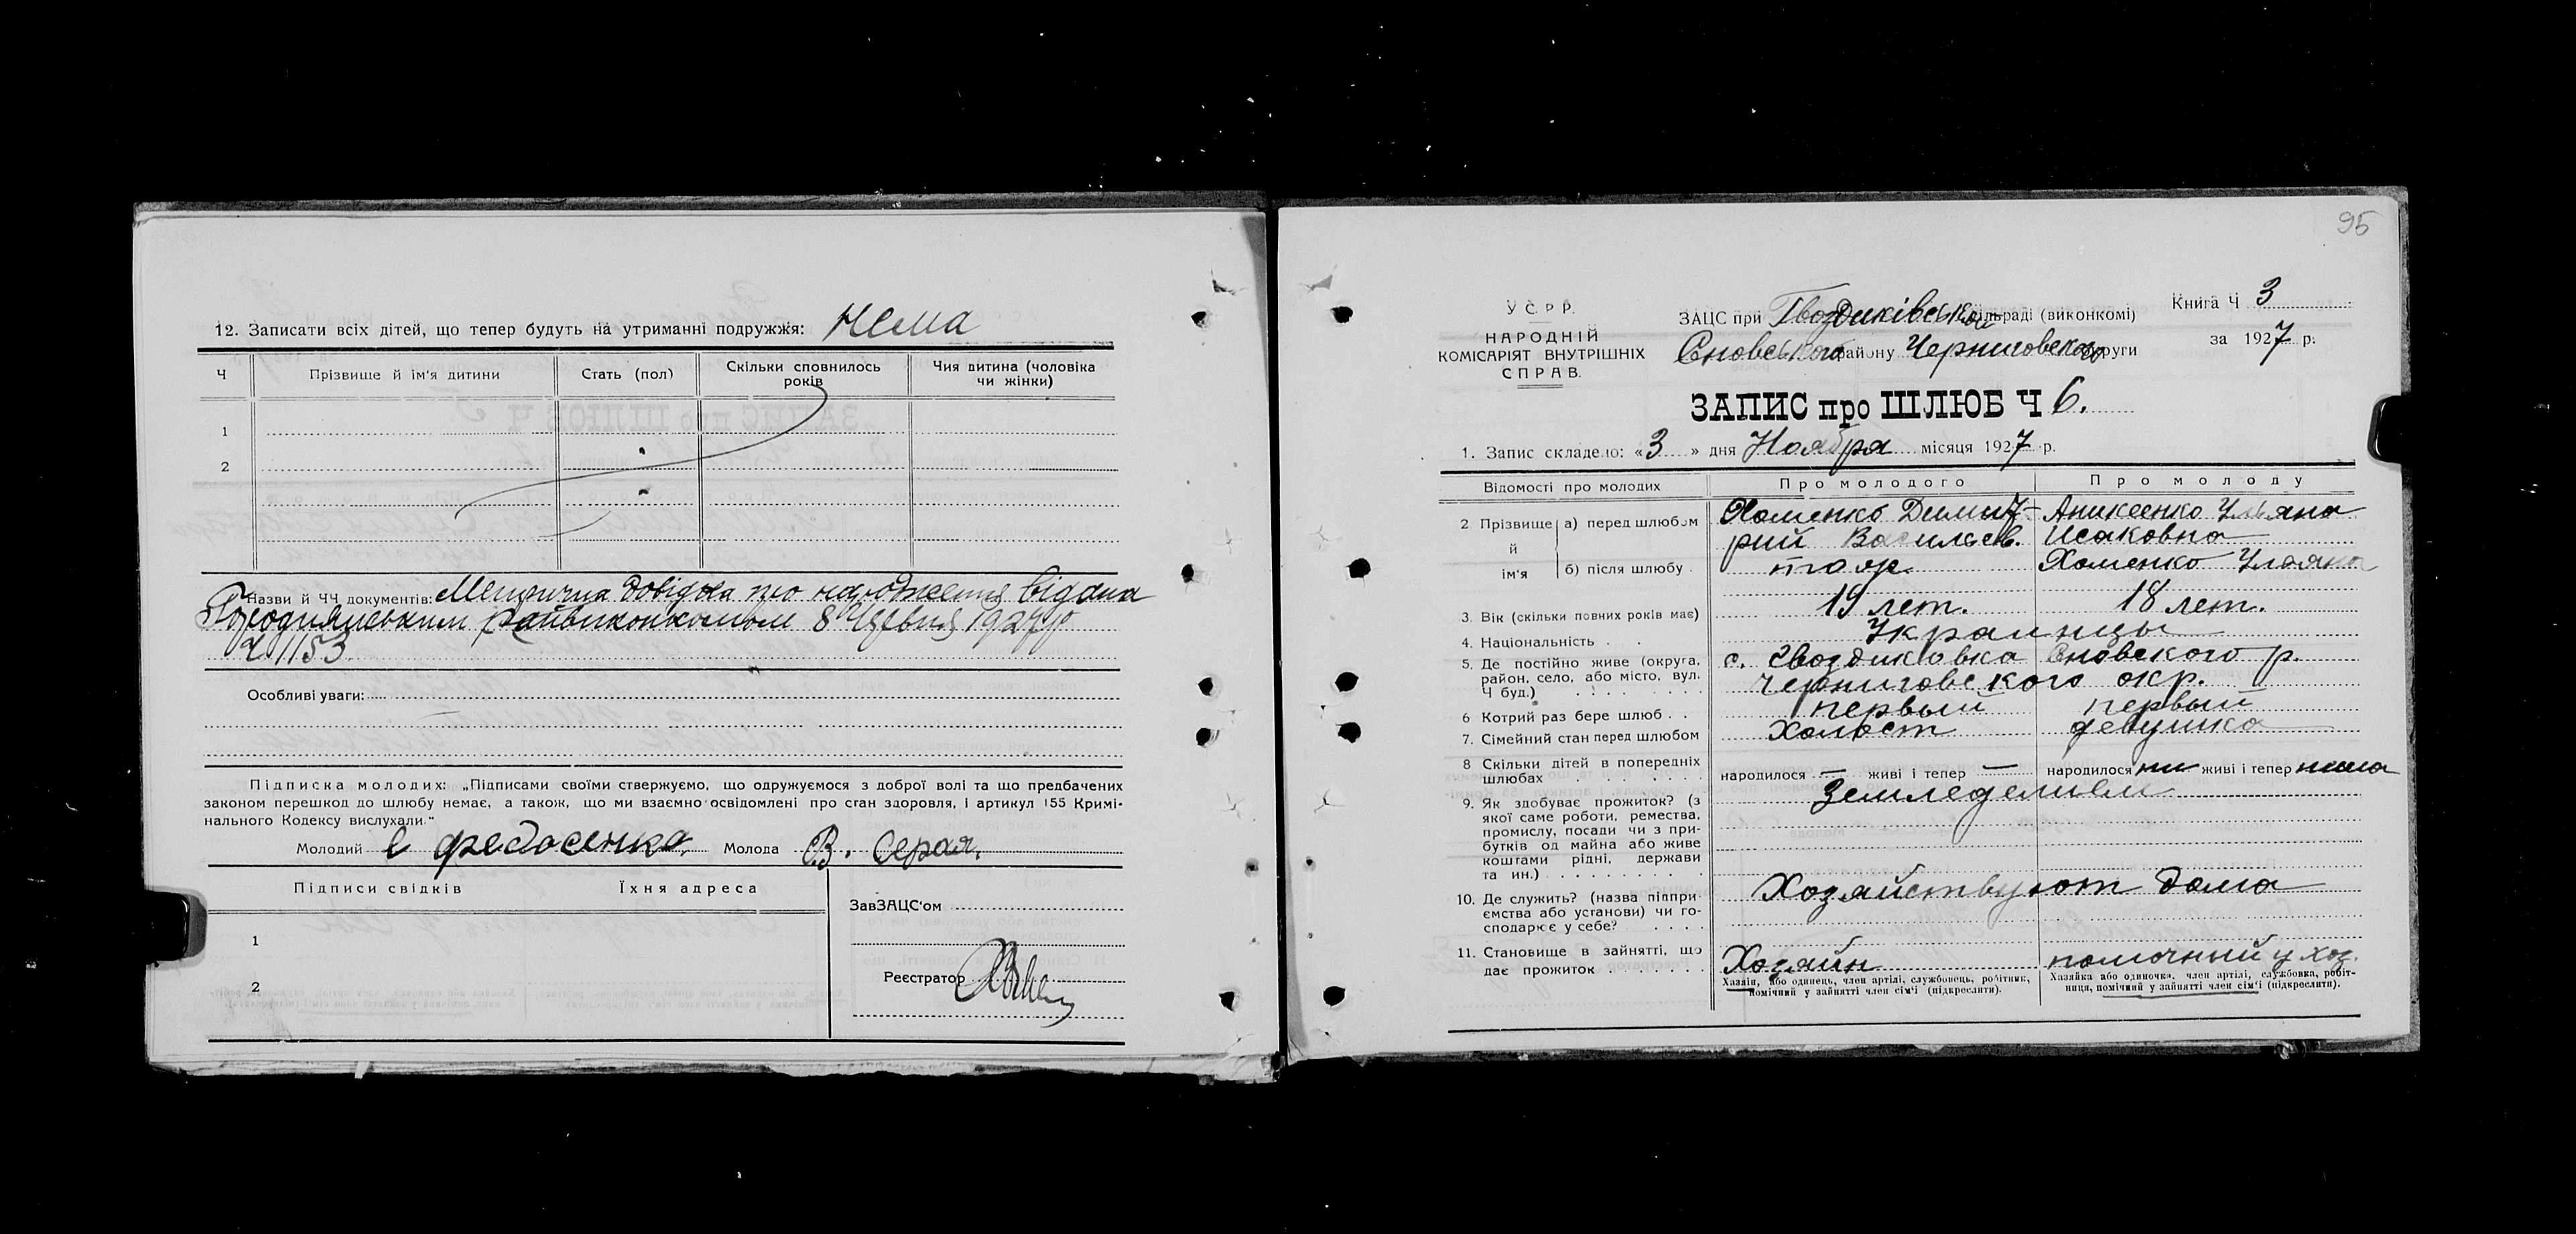 12. Записати всіх дітей, що тепер будуть на утриманні подружжя: Нема
Ч
Прізвище й ім'я дитини
Стать (пол)
Скільки сповнилось років
Чия дитина (чоловіка чи жінки)
1
2
Назви й ЧЧ документів: Метрична довідка про народження видана
Городнянським Райвиконкомом 8 1927 р
Ч 1153
Особливі уваги:
Підписка молодих: „Підписами своїми ствержуємо, що одружуємося з доброї волі та що предбачених
законом перешкод до шлюбу немає, а також, що ми взаємно освідомлені про стан здоровля, і артикул 155 Кримі-
нального Кодексу вислухали."
Молодий Федосенко. Молода В. Серая.
Підписи свідків Їхня адреса
ЗавЗАЦС'ом
1
Реєстратор
2
95
У С Р Р.
НАРОДНІЙ
КОМІСАРІЯТ ВНУТРІШНІХ
СПРАВ.
ЗАЦС при Гвоздиківской сільраді (виконкомі)
Сновського району Черниговского округи
Книга Ч 3
за 1927 р.
ЗАПИС про ШЛЮБ Ч 6.
1. Запис складено: «3» дня Ноября місяця 1927 р.
Відомості про молодих
Про молодого
Про молоду
2 Прізвище й ім'я
а) перед шлюбом
Хоменко Димит-
рий Васильев.
Аникеенко Ульяна
Исаковна
б) після шлюбу
тоже
Хоменко Ульяна
3. Вік (скільки повних років має)
19 лет.
18 лет.
4. Національність
Украинцы
5. Де постійно живе (округа,
район, село, або місто, вул.
Ч буд.)
с. Гвоздиковка Сновского р.
Черниговского окр.
6 Котрий раз бере шлюб
первый
первый
7. Сімейний стан перед шлюбом
Холост
девушка
8 Скільки дітей в попередніх
шлюбах
народилося — живі і тепер —
народилося живі і тепер нема
9. Як здобуває прожиток? (з
якої саме роботи, ремества,
промислу, посади чи з при-
бутків од майна або живе
коштами рідні, держави
та ин.)
Земледелием
10. Де служить? (назва підпри-
ємства або установи) чи го-
сподарює у себе?
Хозяйствуют дома
11. Становище в зайнятті, що
дає прожиток
Хозяин
Хазяїн, або одинець, член артілі, службовець, робітник,
помічний у зайнятті член сім'ї (підкреслити).
помочный у хоз.
Хазяйка або одиночка, член артілі, службовка, робіт-
ниця, помічний у зайнятті член сім'ї (підкреслити).